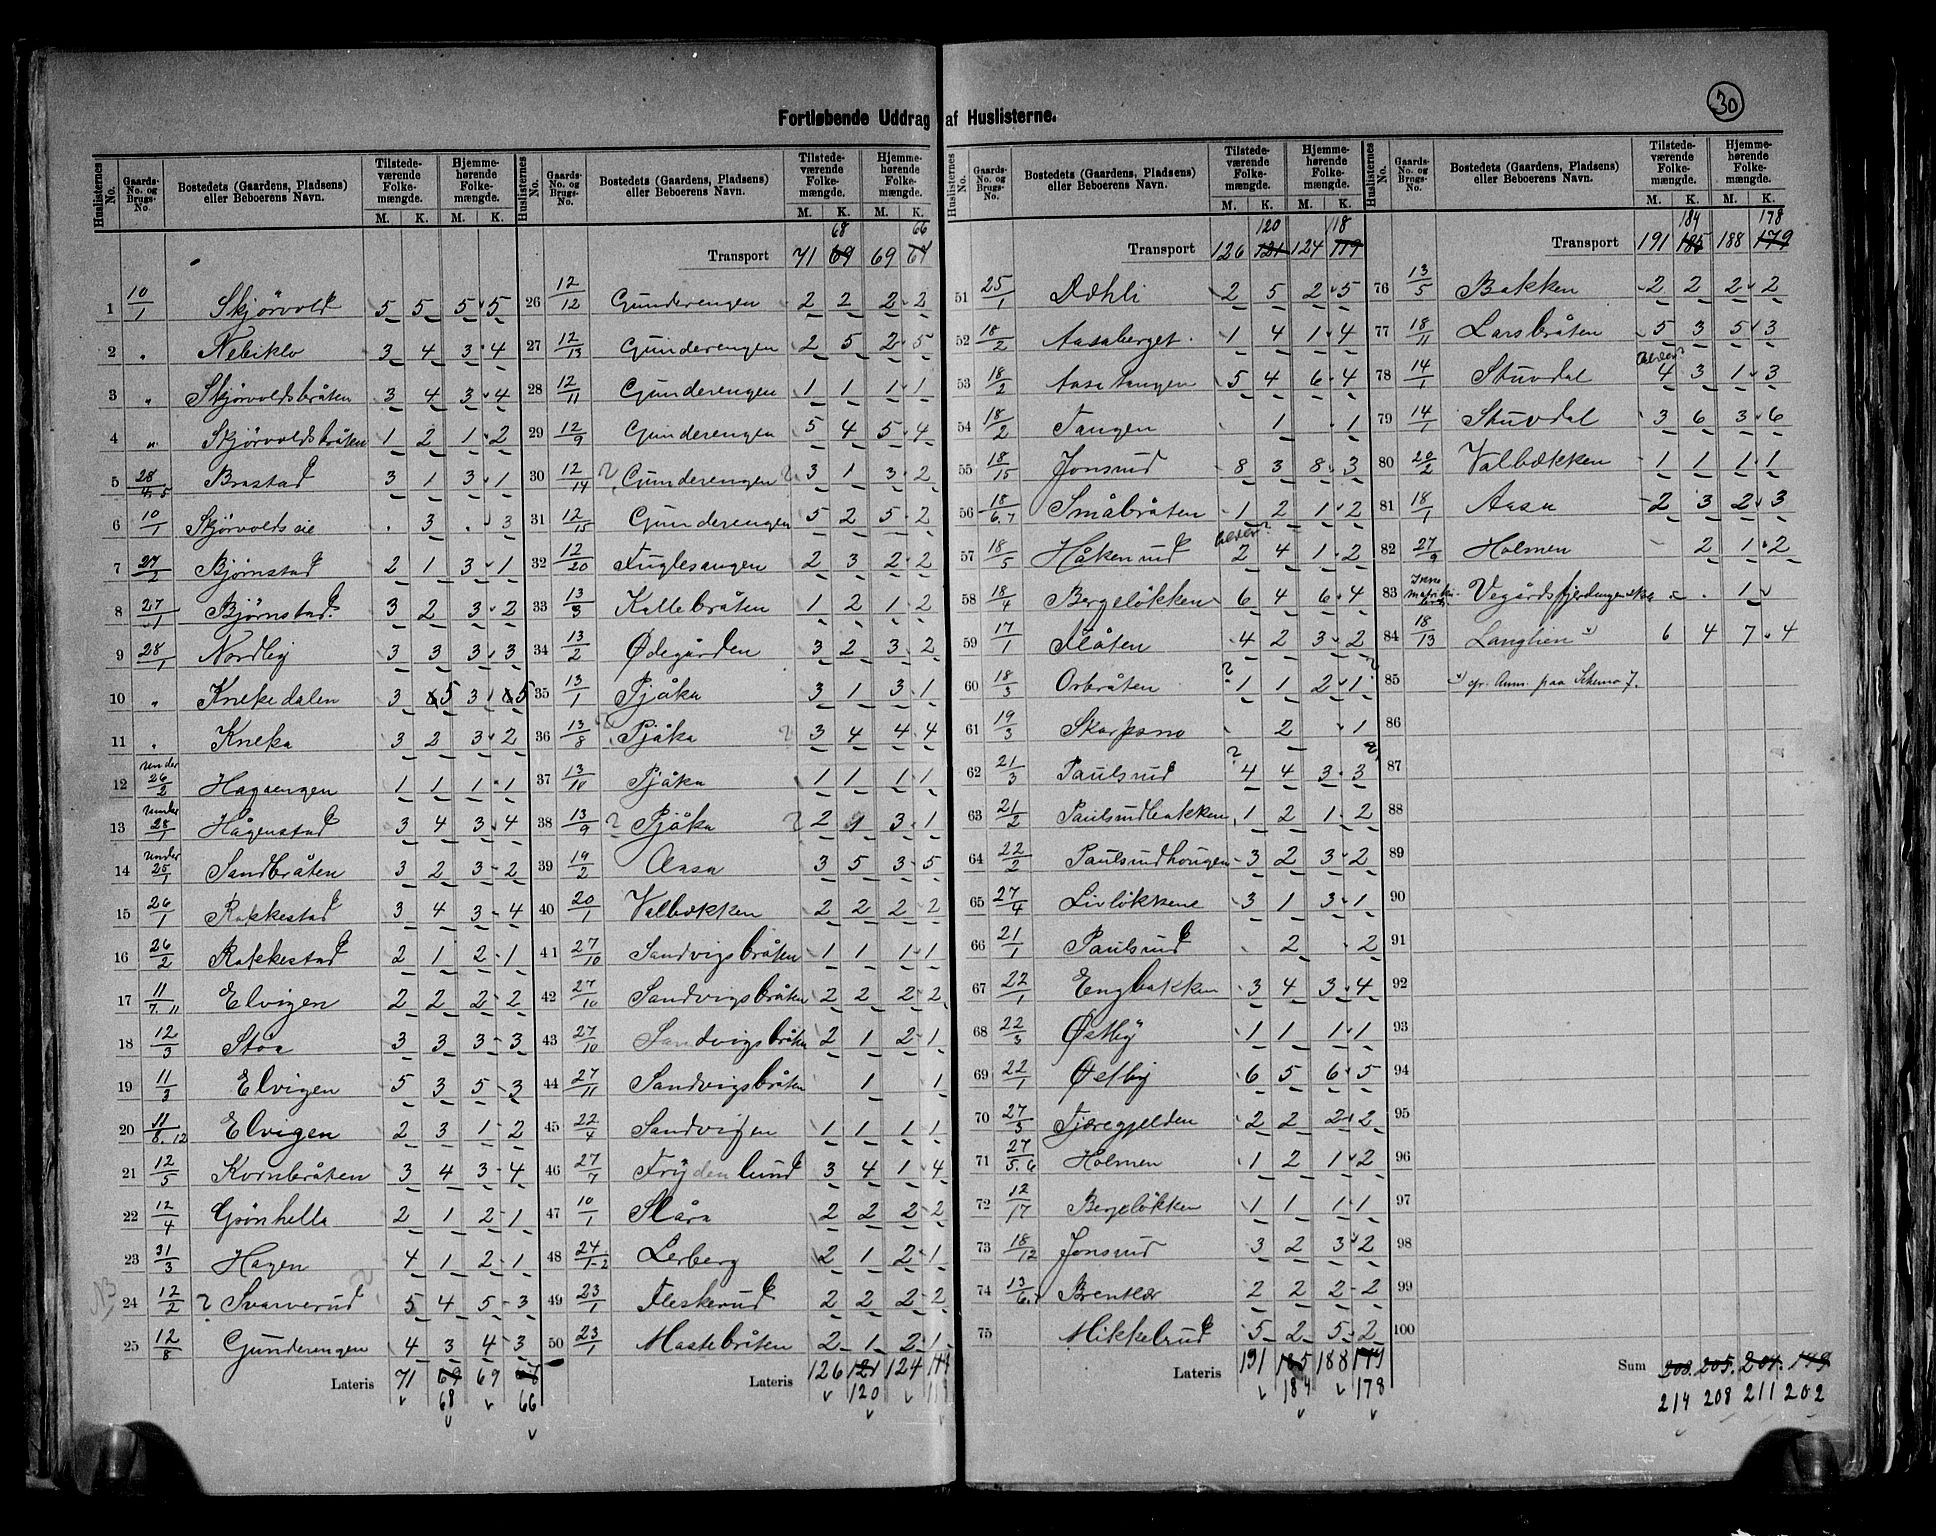 30
Fortløbende Uddrag af Huslisterne.
Huslisternes No. | Gaards-No. og Brugs-No. | Bostedets (Gaardens, Pladsens) eller Beboerens Navn. | Tilstedeværende Folkemængde. M. K. | Hjemmehørende Folkemængde. M. K.
1 10/1 Skjörvold 5 5 5 5
2 " Nebiklo 3 4 3 4
3 " Skjörvoldsbråten 3 4 3 4
4 " Skjörvoldsbråten 1 2 1 2
5 28/4,5 Brastad 3 1 3 1
6 10/1 Skjörvoldseie . 3 . 3
7 27/2 Bjørnstad 2 1 3 1
8 27/1 Bjørnstad 3 2 3 2
9 28/1 Nordby 3 3 3 3
10 " Knekedalen 3 5 3 5
11 " Kneka 3 2 3 2
12 under 26/2 Hagaengen 1 1 1 1
13 under 28/1 Hågenstad 3 4 3 4
14 under 25/1 Sandbråten 3 2 3 2
15 26/1 Rakkestad 3 4 3 4
16 26/2 Rakkestad 2 1 2 1
17 11/7,11 Elvigen 2 2 2 2
18 12/3 Stöa 3 3 3 3
19 11/3 Elvigen 5 3 5 3
20 11/8,12 Elvigen 2 3 1 2
21 12/5 Kornbråten 3 4 3 4
22 12/4 Grönhella 2 1 2 1
23 31/3 Hagen 4 1 2 1
24 12/2 ? Svarverud ? 5 4 5 3
25 12/8 Gunderengen 4 3 4 3
Lateris 71 69 69
68 66
Transport 71 69 69 67
68 66
26 12/12 Gunderengen 2 2 2 2
27 12/13 Gunderengen 2 5 2 5
28 12/11 Gunderengen 1 1 1 1
29 12/9 Gunderengen 5 4 5 4
30 12/14 ? Gunderengen ? 3 1 3 2
31 12/15 Gunderengen 5 2 5 2
32 12/20 Fuglesangen 2 3 2 2
33 13/3 Kallebråten 1 2 1 2
34 13/2 Ødegården 3 2 3 2
35 13/1 Pjåka 3 1 3 1
36 13/8 ? Pjåka ? 3 4 4 4
37 13/10 Pjåka 1 1 1 1
38 13/9 ? Pjåka ? 2 1 3 1
39 19/2 Aasa 3 5 3 5
40 20/1 Valbækken 2 2 2 2
41 27/10 Sandvigsbråten 1 1 1 1
42 27/10 Sandvigsbråten 2 2 2 2
43 27/10 Sandvigsbråten 2 1 2 1
44 27/11 Sandvigsbråten 1 1
45 22/4 Sandvigen 1 1 1 1
46 27/7 Frydenlund 3 4 1 4
47 10/1 Slåra 2 2 2 2
48 24/1-2 Lerberg 2 1 2 1
49 23/1 Fleskerud 2 2 2 2
50 23/1 Mastebråten 2 1 2 1
Lateris 126 121 124 119
120 118
Transport 126 121 124 119
120 118
51 25/1 Dæhli 2 5 2 5
52 18/2 Aasaberget 1 4 1 4
53 18/2 Aasatangen 5 4 6 4
54 18/2 Tangen 1 1
55 18/15 Jonsrud 8 3 8 3
56 18/6,7 Småbråten 1 2 1 2
57 18/5 Håkenrud 2 4 1 2
58 18/4 Bergeløkken 6 4 6 4
59 17/1 Flåten 4 2 3 2
60 18/3 Orbråten ? 1 1 2 1 ?
61 19/3 Skarpsno 2 1
62 21/3 Paulsrud ? 4 4 3 3 ?
63 21/2 Paulsrudbakken 1 2 1 2
64 22/2 Paulsrudhougen 3 2 3 2
65 27/4 Livlökkene 3 1 3 1
66 21/1 Paulsrud 2 2
67 22/1 Engbakken 3 4 3 4
68 22/3 Østby 1 1 1 1
69 22/1 Østby 6 5 6 5
70 27/3 Tjæregjelden 2 2 2 2
71 27/5,6 Holmen 1 2 1 2
72 12/17 Bergeløkken 1 1 1 1
73 18/12 Jonsrud 3 2 3 2
74 13/6 Brenthær 2 2 2 2
75 Mikkelrud 5 2 5 2
Lateris 191 185 188 179
184 178
Transport 191 185 188 179
184 178
76 13/5 Bakken 2 2 2 2
77 18/11 Larsbråten 5 3 5 3
78 14/1 Stuvdal 4 3 1 3
79 14/1 Stuvdal 3 6 3 6
80 20/2 Valbækken 1 1 1 1
81 18/1 Aasa 2 3 2 3
82 27/9 Holmen 2 1 2
83 Vegårdsfjerdingen 1
84 18/13 Langlien x) 6 4 7 4
85 x) cfr. Anm. paa Schema 7.
86
87
88
89
90
91
92
93
94
95
96
97
98
99
100
Sum 203. 205. 204. 199
214 208 211 202